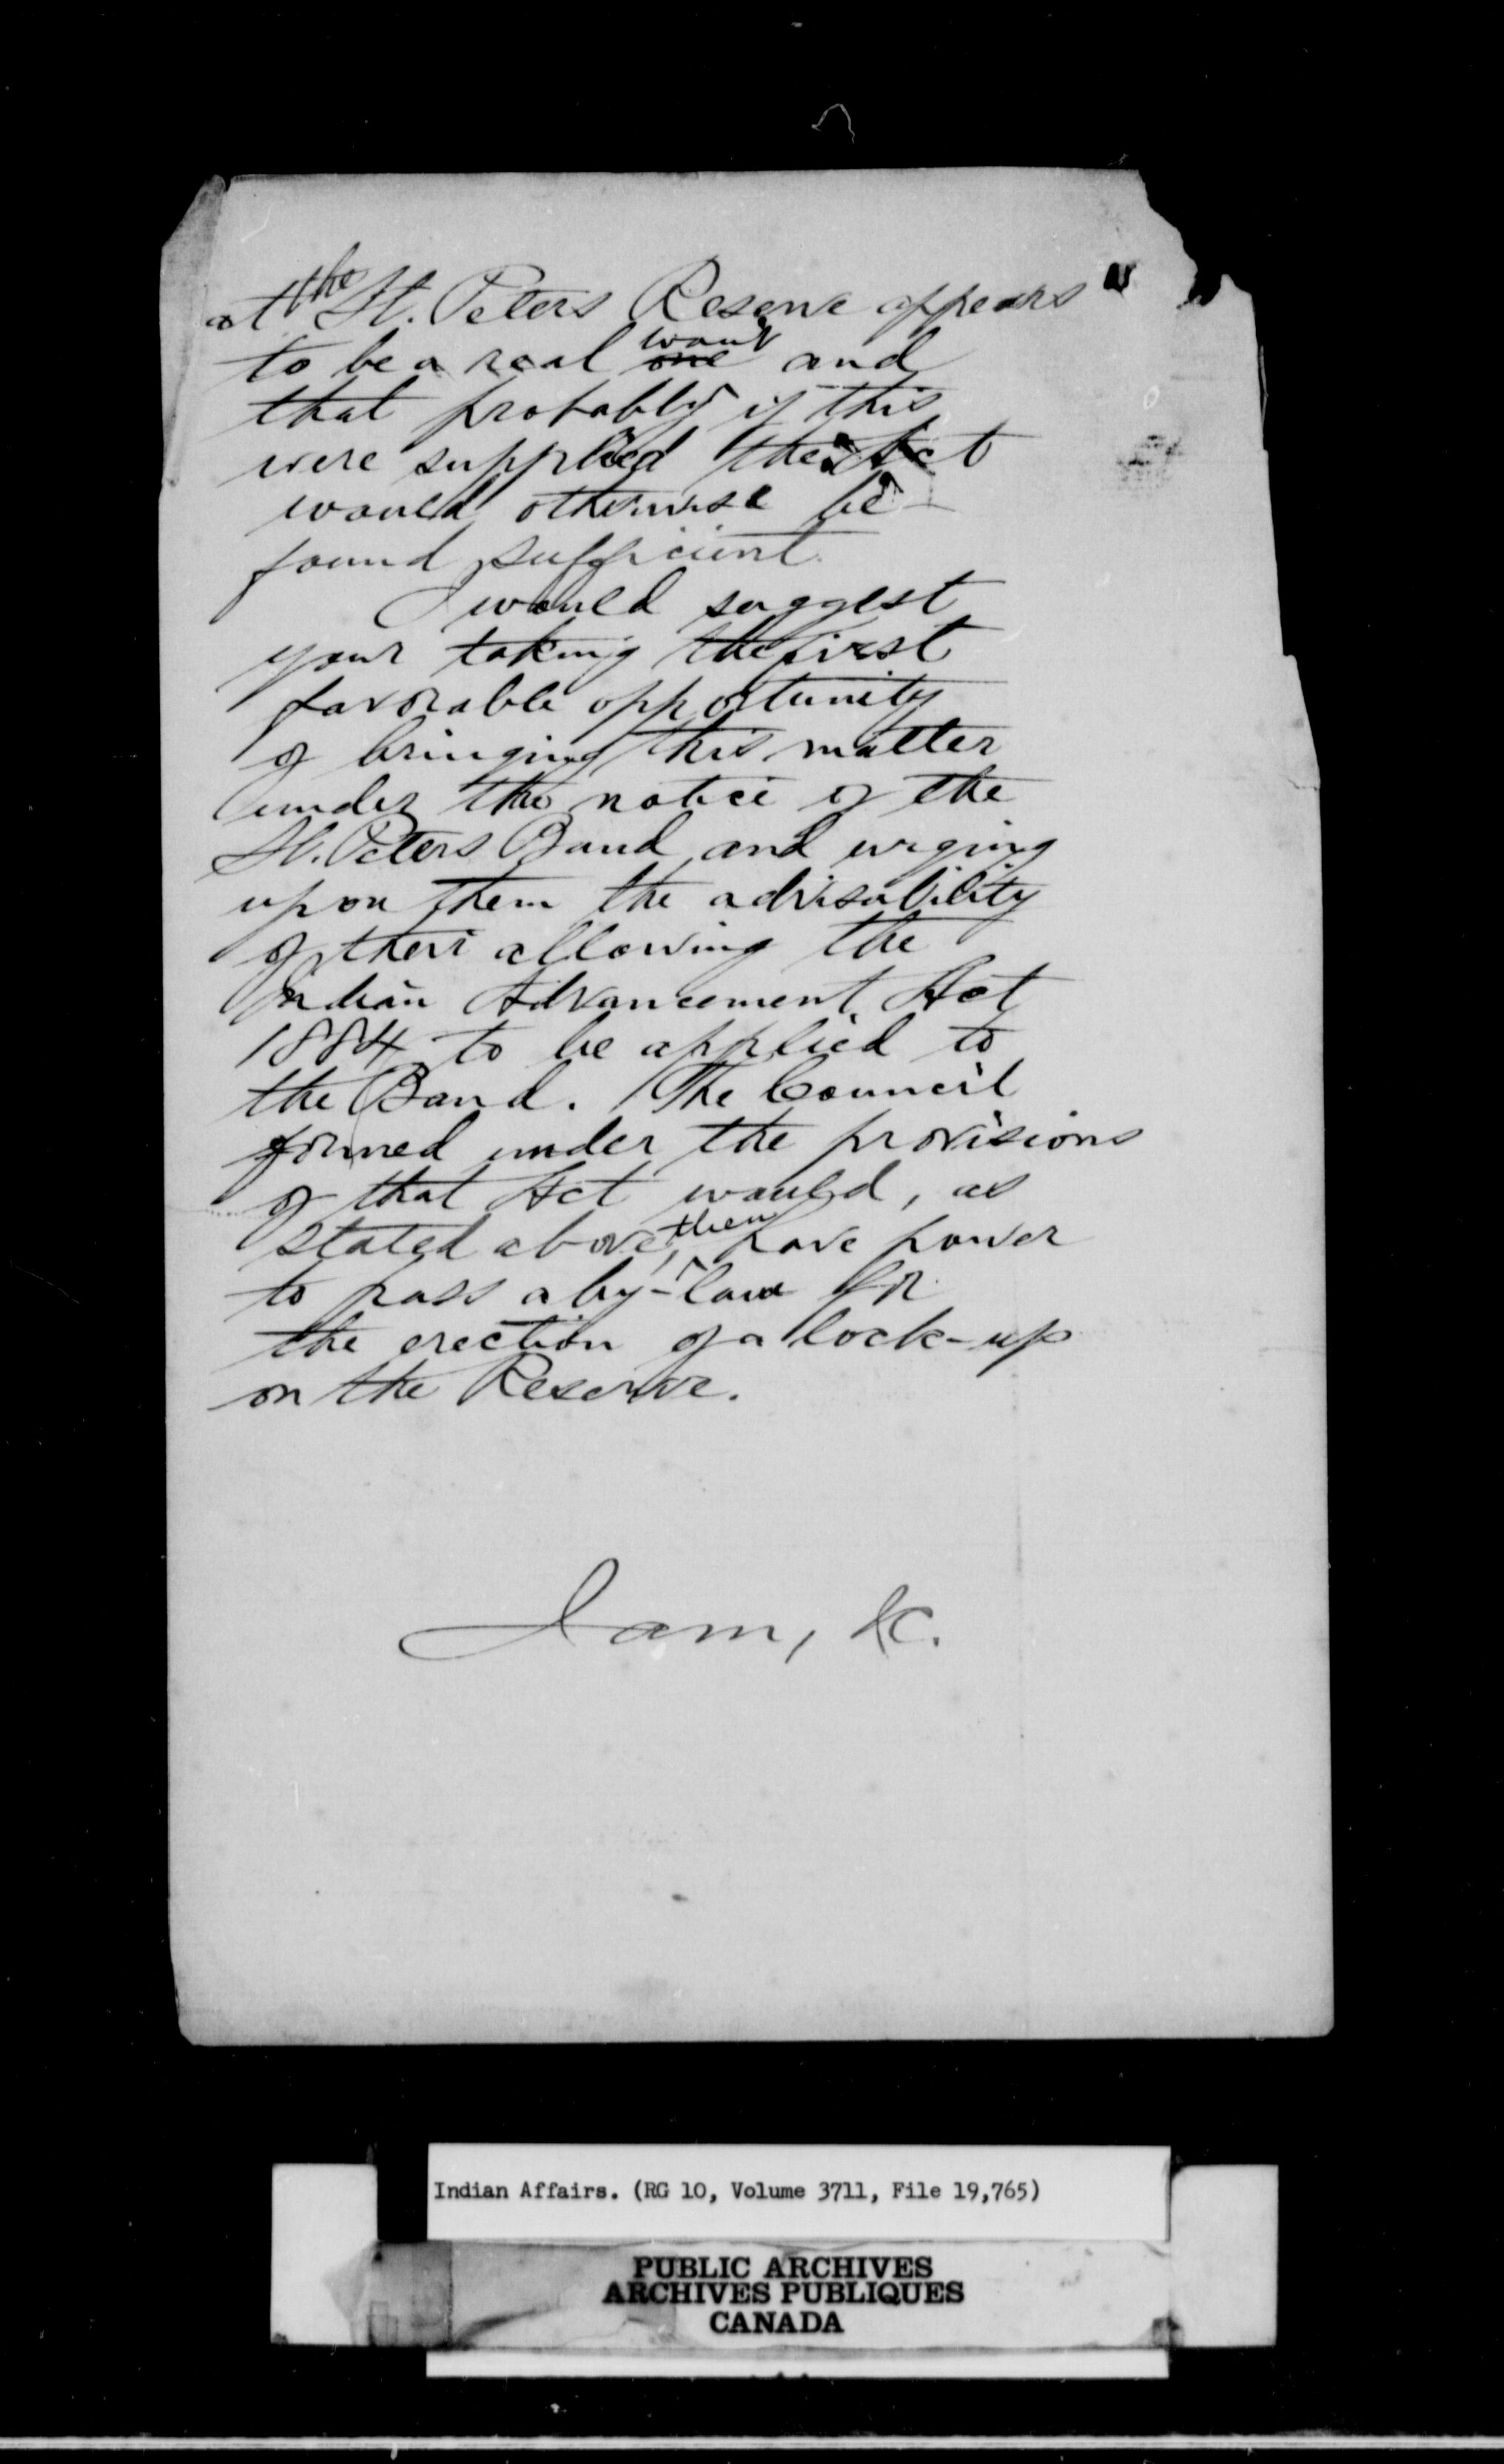 at the St. Peters Reserve appears
to be a real want and
that probably if this
were supplied the Act
would otherwise be
found sufficient.
I would suggest
your taking the first
favorable opportunity
of bringing this matter
under the notice of the
St. Peters Band and urging
upon them the advisability
of their allowing the
Indian Advancement Act
1884 to be applied to
the Band. The Council
formed under the provisions
of that Act would, as
stated above, then have power
to pass a by-law for
the erection of a lock-up
on the Reserve.
I am, &c.
Indian Affairs. (RG 10, Volume 3711, File 19,765)
PUBLIC ARCHIVES
ARCHIVES PUBLIQUES
CANADA